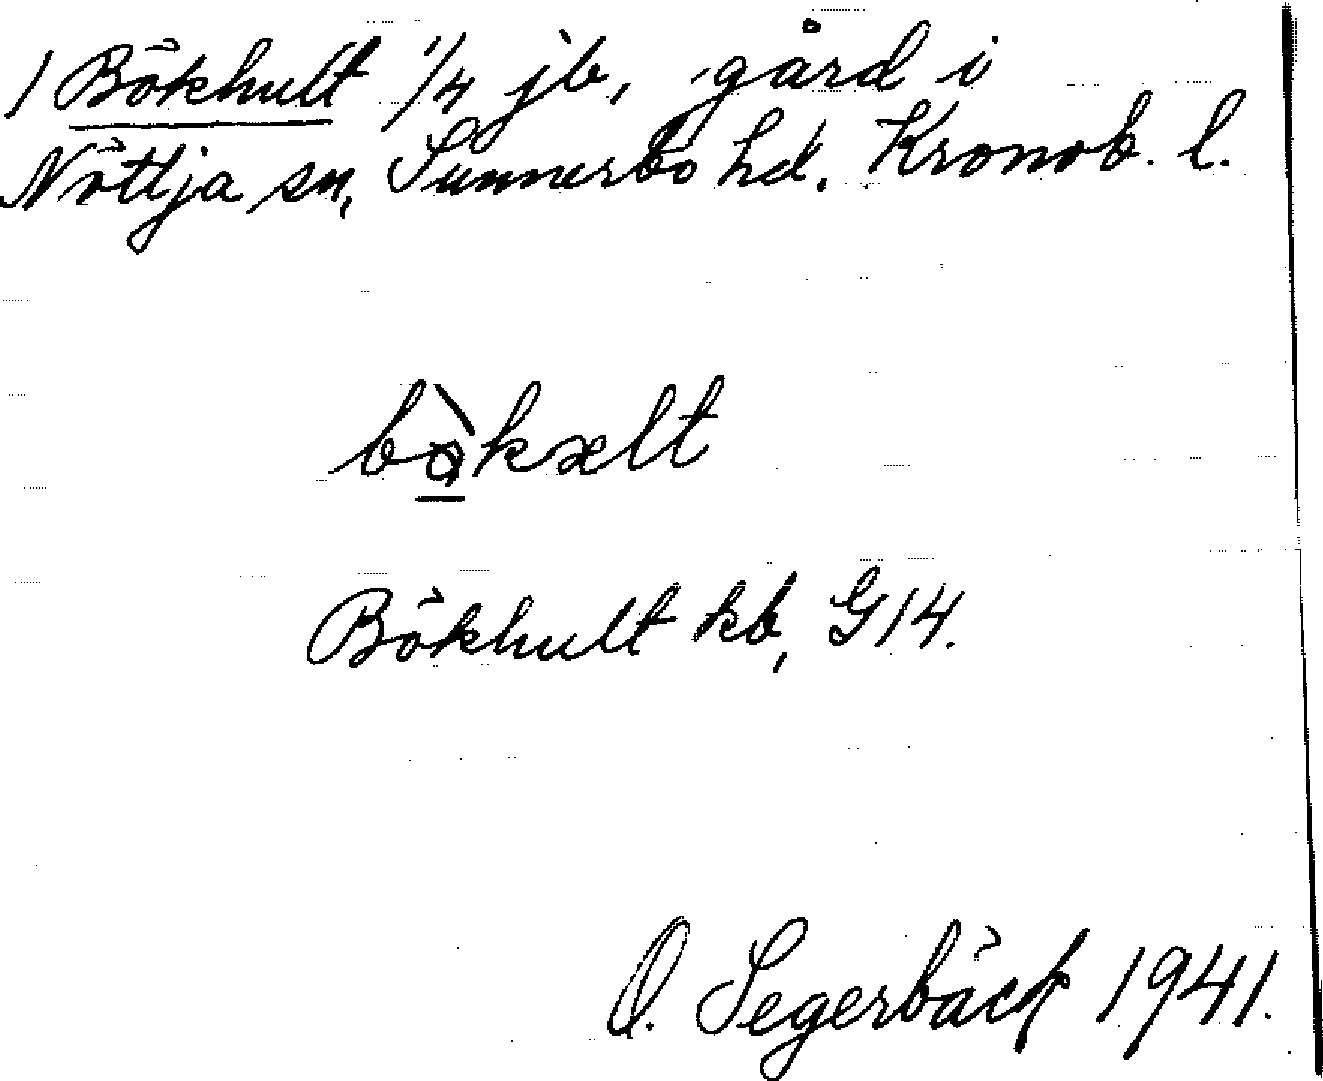 1 Bökhult 1/4 jb, gård i
Nöttja sn, Sunnerbo hd. Kronob. l.
bö̀kælt
Bökhult kb, G14.
O. Segerbäck 1941.